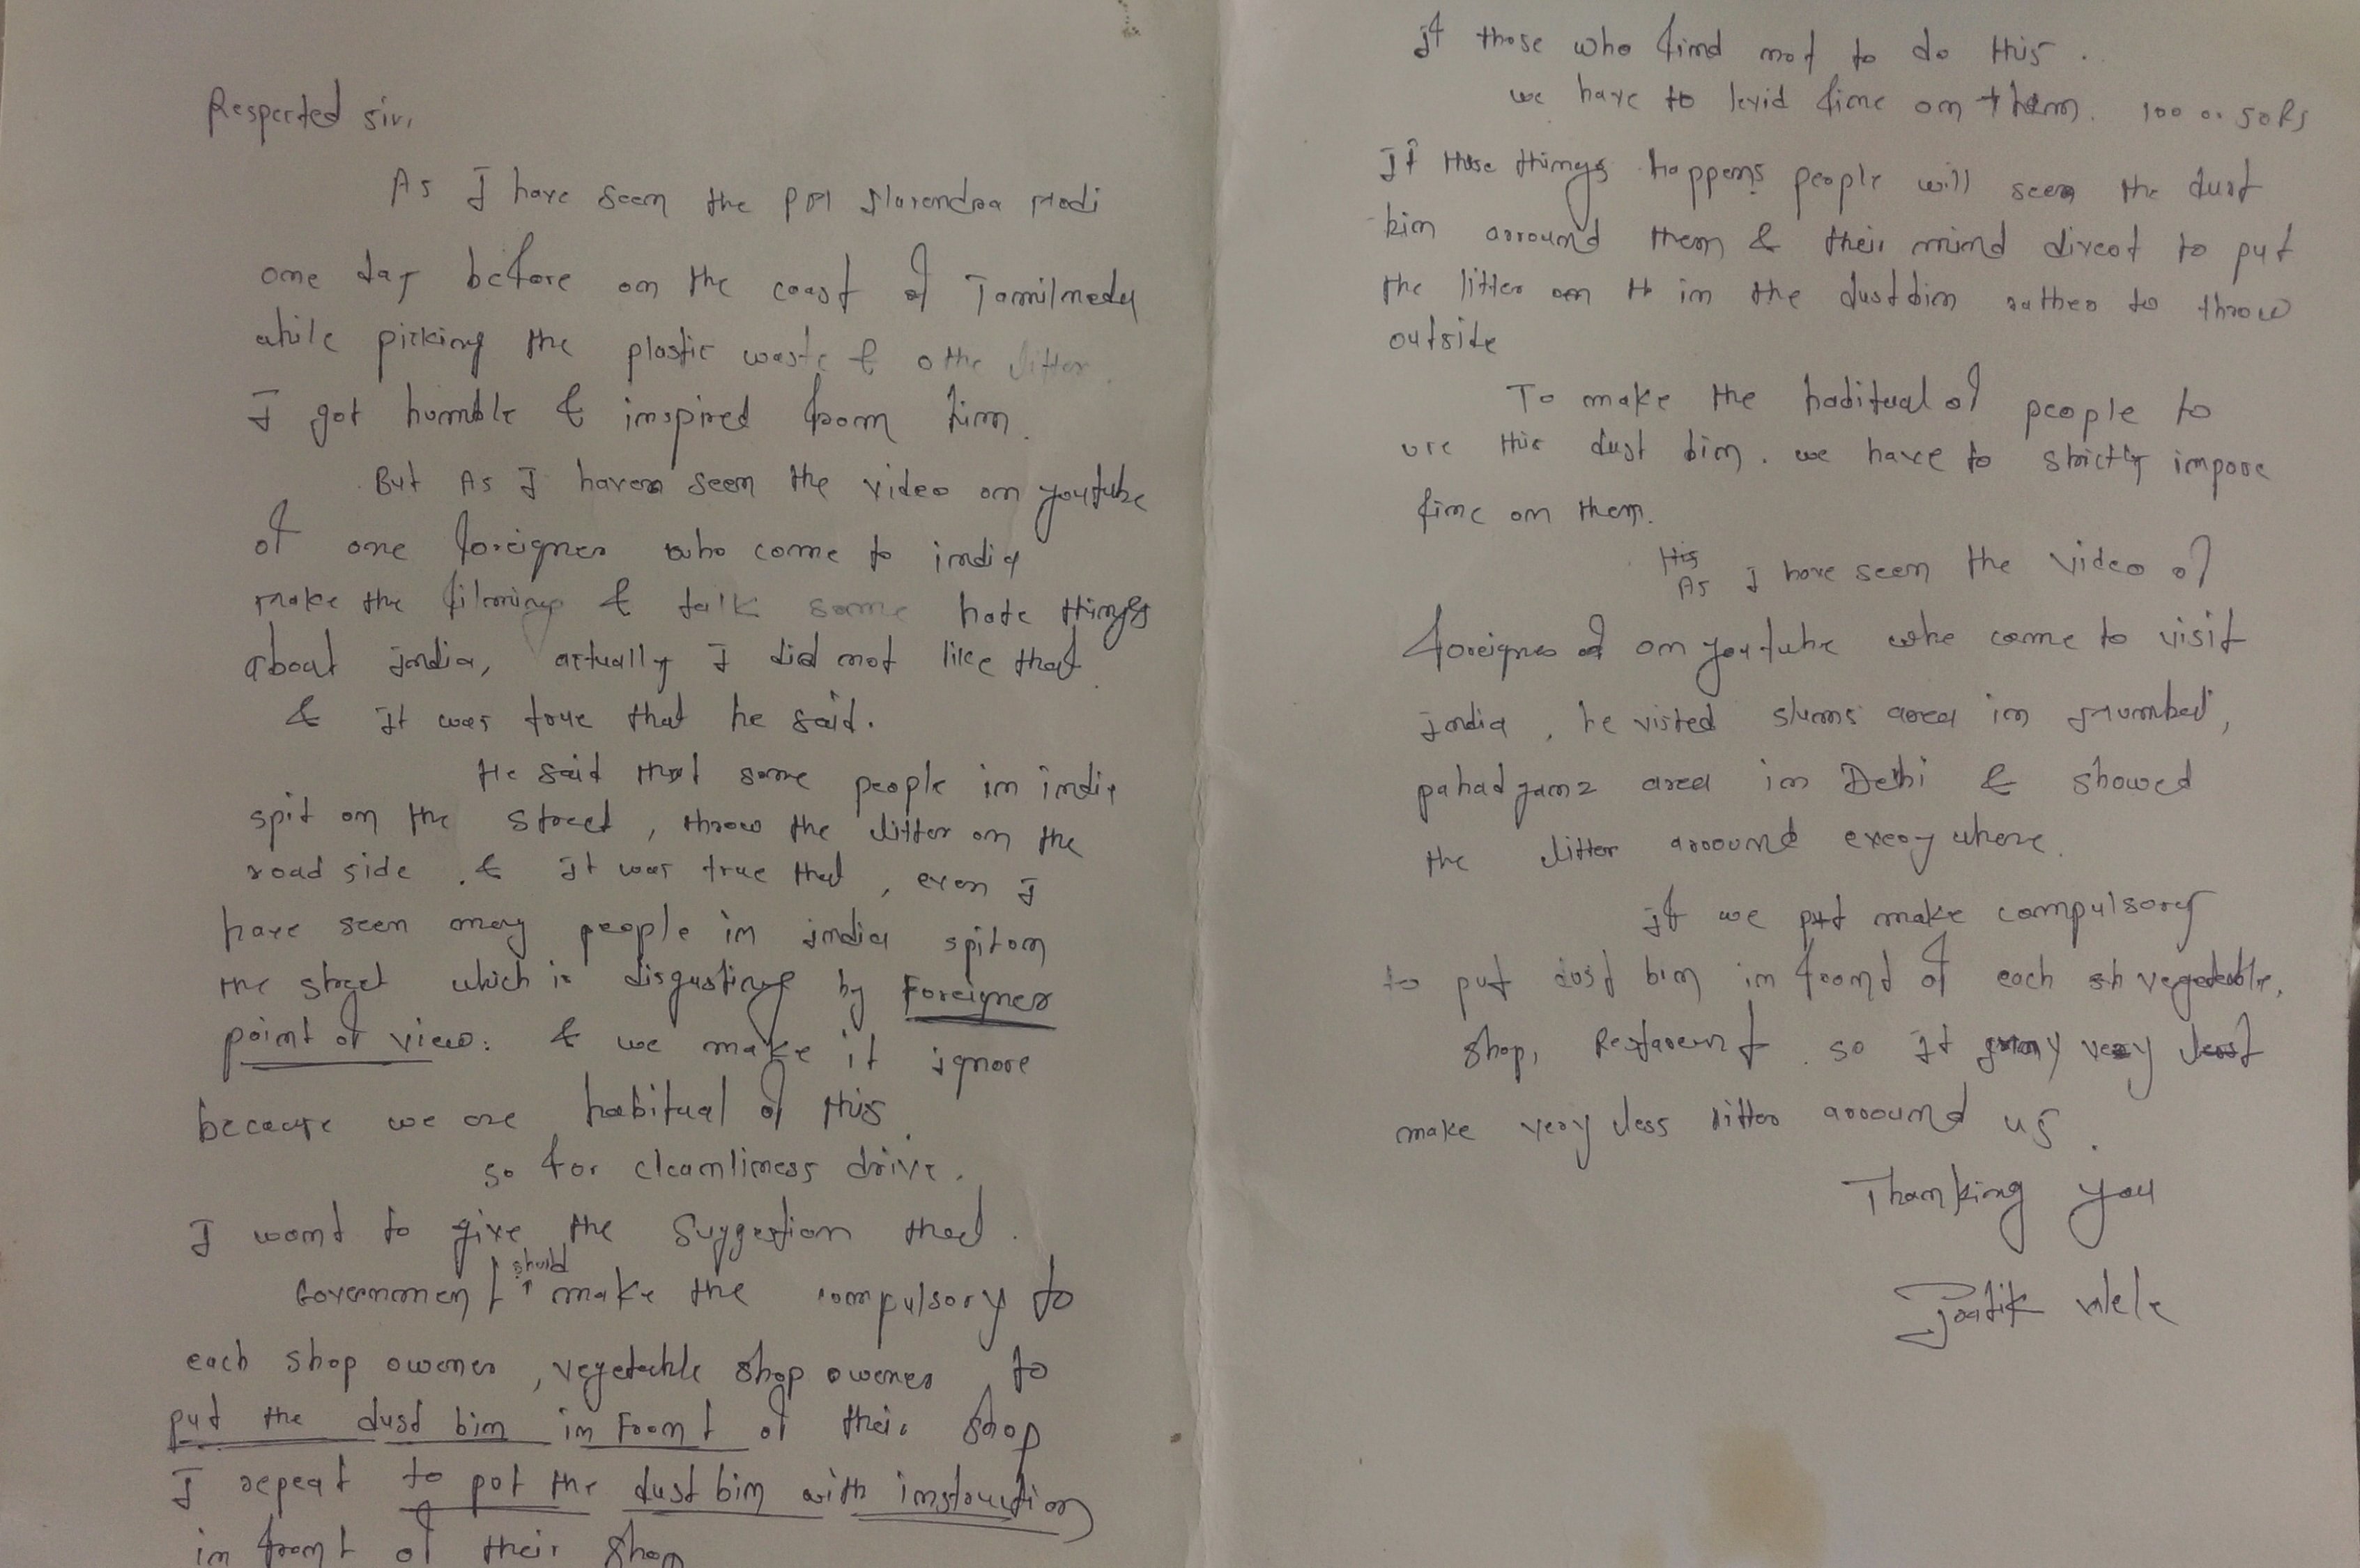 Respected sir,
As I have seen the PM Narendra Modi
one day before on the coast of Tamilnadu
while picking the plastic waste & othe litter.
I got humble & inspired from him.
But As I have seen the video on youtube
of one foreigner who come to india
make the filming & talk some hate things
about india, actually I did not like that
& it was true that he said.
He said that some people in india
spit on the street, throw the litter on the
road side. & it was true that, even I
have seen many people in india spit on
the street which is disgusting by Foreigner
point of view. & we make it ignore
because we are habitual of this
so for cleanliness drive.
I want to give the suggestion that.
Government should make the compulsory to
each shop owener, vegetable shop owener to
put the dust bin in Front of their shop
I repeat to put the dust bin with instruction
in front of their shop
if those who find not to do this.
we have to levid fine on them. 100 or 50Rs
If these things happens people will seen the dust
bin arround them & their mind direct to put
the litter in the dustbin rather to throw
outside
To make the habitual of people to
use this dust bin. we have to strictly impose
fine on them.
His
As I have seen the video of
foreigner on youtube who come to visit
india, he visted slums area in Mumbai,
pahadganz area in Delhi & showed
the litter arround every where.
if we put make compulsory
to put dust bin in front of each sh vegetable,
shop, Restaurent. so it may very least
make very less litter arround us.
Thanking you
Pratik Wele